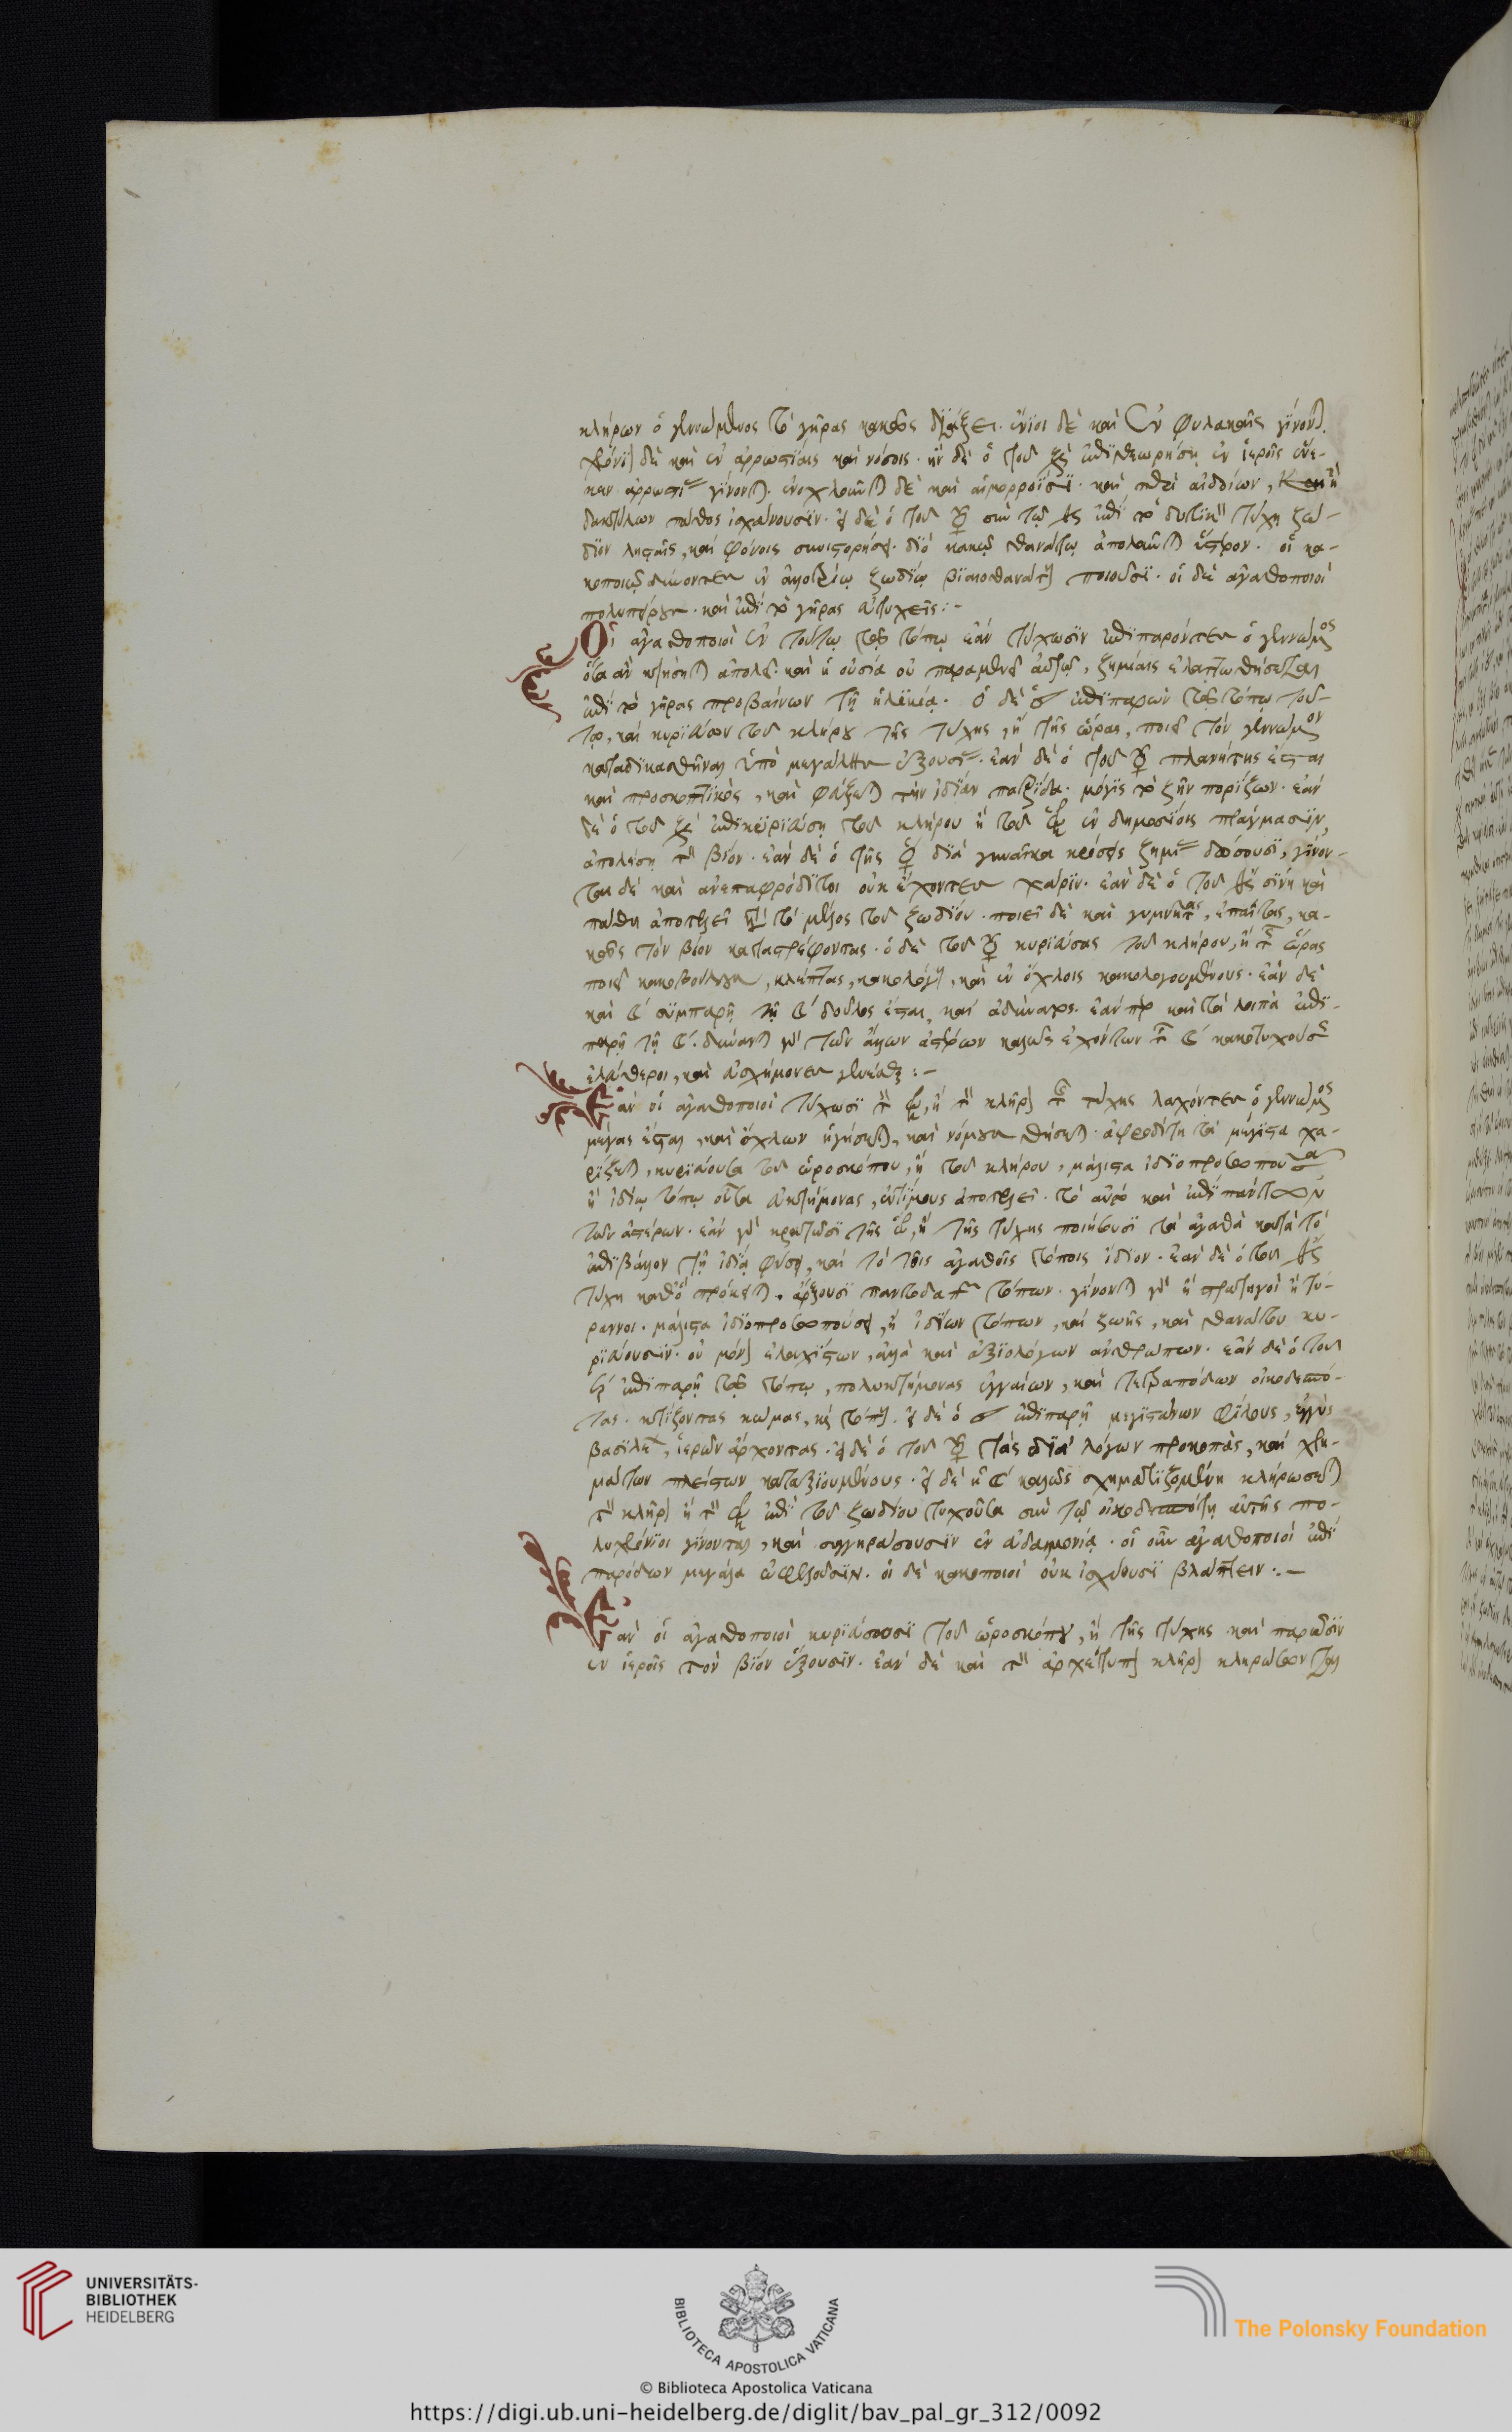 κλήρων ὁ γεννώμενος τὸ γῆρας κακῶς διάξει. ἔνιοι δὲ καὶ ἐν φυλακαῖς γίνονται.
χρόνιοι δὲ καὶ ἐν ἀρρωστίαις καὶ νόσοις. ἢν δὲ ὁ τοῦ ἐπιθεωρήσῃ ἐν ἱεροῖς ἕνε-
κεν ἀρρωστίας γίνονται. ἐνοχλοῦνται δὲ καὶ αἱμορροΐσι. καὶ περὶ αἰδοίων, ἢ
δακτύλων πάθος ἰσχάνουσιν. εἰ δὲ ὁ τοῦ ☿ σὺν τῷ ἐπὶ τοῦ δυτικοῦ τύχῃ ζω-
δίου λῃσταῖς, καὶ φόνοις συνιστορήσει. διὸ κακῷ θανάτῳ ἀπολοῦνται ὕστερον. οἱ κα-
κοποιῷ δύνοντες ἐν ἀλλοτρίῳ ζωδίῳ βιαιοθανάτους ποιοῦσι. οἱ δὲ ἀγαθοποιοὶ
καὶ ἐπὶ τὸ γῆρας εὐτυχεῖς :-
Οἱ ἀγαθοποιοὶ ἐν τούτῳ τῷ τόπῳ ἐὰν τύχωσιν ἐπιπαρόντες ὁ γεννώμενος
ὅσα ἂν κτήσηται ἀπολεῖ. καὶ ἡ οὐσία οὐ παραμενεῖ αὐτῷ, ζημίαις ἐλαττωθήσεται
ἐπὶ τὸ γῆρας προβαίνων τῇ ἡλικίᾳ. ὁ δὲ ἐπιπαρὼν τῷ τόπῳ τού-
τῳ, καὶ κυριεύων τοῦ κλήρου τῆς τύχης, ἢ τῆς ὥρας, ποιεῖ τὸν γεννώμενον
καταδικασθῆναι ὑπὸ μεγάλης ἐξουσίας. ἐὰν δὲ ὁ τοῦ ☿ πλανήτης ἔσται
καὶ προσκοπτικὸς, καὶ φεύξεται τὴν ἰδίαν πατρίδα. μόγις τὸ ζῆν πορίζων. ἐὰν
δὲ ὁ τοῦ ἐπικυριεύσῃ τοῦ κλήρου ἢ τοῦ ἐν δημοσίοις πράγμασιν,
ἀπολέσῃ τὸν βίον. ἐὰν δὲ ὁ τῆς ♀ διὰ γυναῖκα κρίσεις ζημίας δώσουσι, γίνον-
ται δὲ καὶ ἀνεπαφρόδιτοι οὐκ ἔχοντες χάριν. ἐὰν δὲ ὁ τοῦ σίνη καὶ
πάθη ἀποτελεῖ κατὰ τὸ μέλος τοῦ ζωδίου. ποιεῖ δὲ καὶ γυμνήτας, ἐπαίτας, κα-
κῶς τὸν βίον καταστρέφοντας. ὁ δὲ τοῦ ☿ κυριεύσας τοῦ κλήρου, ἢ τῆς ὥρας
ποιεῖ κακοβούλους, κλέπτας, κακολόγους, καὶ ἐν ὄχλοις κακολογουμένους. ἐὰν δὲ
καὶ ☾ συμπαρῇ τῇ ☾ δοῦλος ἔσται, καὶ ἀδύνατος. ἐὰν περ καὶ τὰ λοιπὰ ἐπι-
παρῇ τῇ ☾. δύνανται γὰρ τῶν ἄλλων ἀστέρων καλῶς ἐχόντων τῆς ☾ κακοτυχούσης
ἐλεύθεροι, καὶ εὐσχήμονες γενέσθαι :-
Ἐὰν οἱ ἀγαθοποιοὶ τύχωσι τὸν , ἢ τὸν κλῆρον τῆς τύχης λαχόντες ὁ γεννώμενος
μέγας ἔσται, καὶ ὄχλων ἡγήσεται, καὶ νόμους θήσεται. ἀφροδίτη τὰ μέγιστα χα-
ρίζεται, κυριεύουσα τοῦ ὡροσκόπου, ἢ τοῦ κλήρου, μάλιστα ἰδιοπροσωποῦσα
ἢ ἰδίῳ τόπῳ οὖσα εὐκτήμονας, ἐντίμους ἀποτελεῖ. τὸ αὐτὸ καὶ ἐπὶ πάντων
τῶν ἀστέρων. ἐὰν γὰρ κρατῶσι τῆς , ἢ τῆς τύχης ποιήσουσι τὰ ἀγαθὰ κατὰ τὸ
ἐπιβάλλον τῇ ἰδίᾳ φύσει, καὶ τὸ τοῖς ἀγαθοῖς τόποις ἴδιον. ἐὰν δὲ ὁ τοῦ
τύχῃ καθὸ πρόκειται, ἄρξουσι παντοδαπῶν τόπων. γίνονται γὰρ ἢ στρατηγοὶ ἢ τύ-
ραννοι. μάλιστα ἰδιοπροσωπούσει, ἢ ἰδίων τόπων, καὶ ζωῆς, καὶ θανάτου κυ-
ριεύουσιν. οὐ μόνον ἐλαχίστων, ἀλλὰ καὶ ἀξιολόγων ἀνθρώπων. ἐὰν δὲ ὁ τοῦ
ἐπιπαρῇ τῷ τόπῳ, πολυκτήμονας ἐγγαίων, καὶ τετραπόδων οἰκοδεσπό-
τας. κτίζοντας κώμας, καὶ τόπους. εἰ δὲ ὁ ἐπιπαρῇ μεγιστάνων φίλους, ἐγγὺς
βασιλέων, ἱερῶν ἄρχοντας. εἰ δὲ ὁ τοῦ ☿ τὰς διὰ λόγων προκοπὰς, καὶ χρη-
μάτων πλείστων καταξιουμένους. εἰ δὲ ἡ ☾ καλῶς σχηματιζομένη κληρώσεται
τὸν κλῆρον ἢ τὸν ἐπὶ τοῦ ζωδίου τυχοῦσα σὺν τῷ οἰκοδεσπότῃ αὐτῆς πο-
λυχρόνιοι γίνονται, καὶ συγγηράσουσιν ἐν εὐδαιμονίᾳ. οἱ οὖν ἀγαθοποιοὶ ἐπὶ
παρόδων μεγάλα ὠφελοῦσιν. οἱ δὲ κακοποιοὶ οὐκ ἰσχύουσι βλάπτειν :-
Ἐὰν οἱ ἀγαθοποιοὶ κυριεύσουσι τοῦ ὡροσκόπου, ἢ τῆς τύχης καὶ παρῶσιν
ἐν ἱεροῖς τὸν βίον ἕξουσιν. ἐὰν δὲ καὶ τὸν ἀρχέτυπον κλῆρον κληρώσονται
UNIVERSITÄTS-
BIBLIOTHEK
HEIDELBERG
BIBLIOTECA APOSTOLICA VATICANA
The Polonsky Foundation
© Biblioteca Apostolica Vaticana
https://digi.ub.uni-heidelberg.de/diglit/bav_pal_gr_312/0092